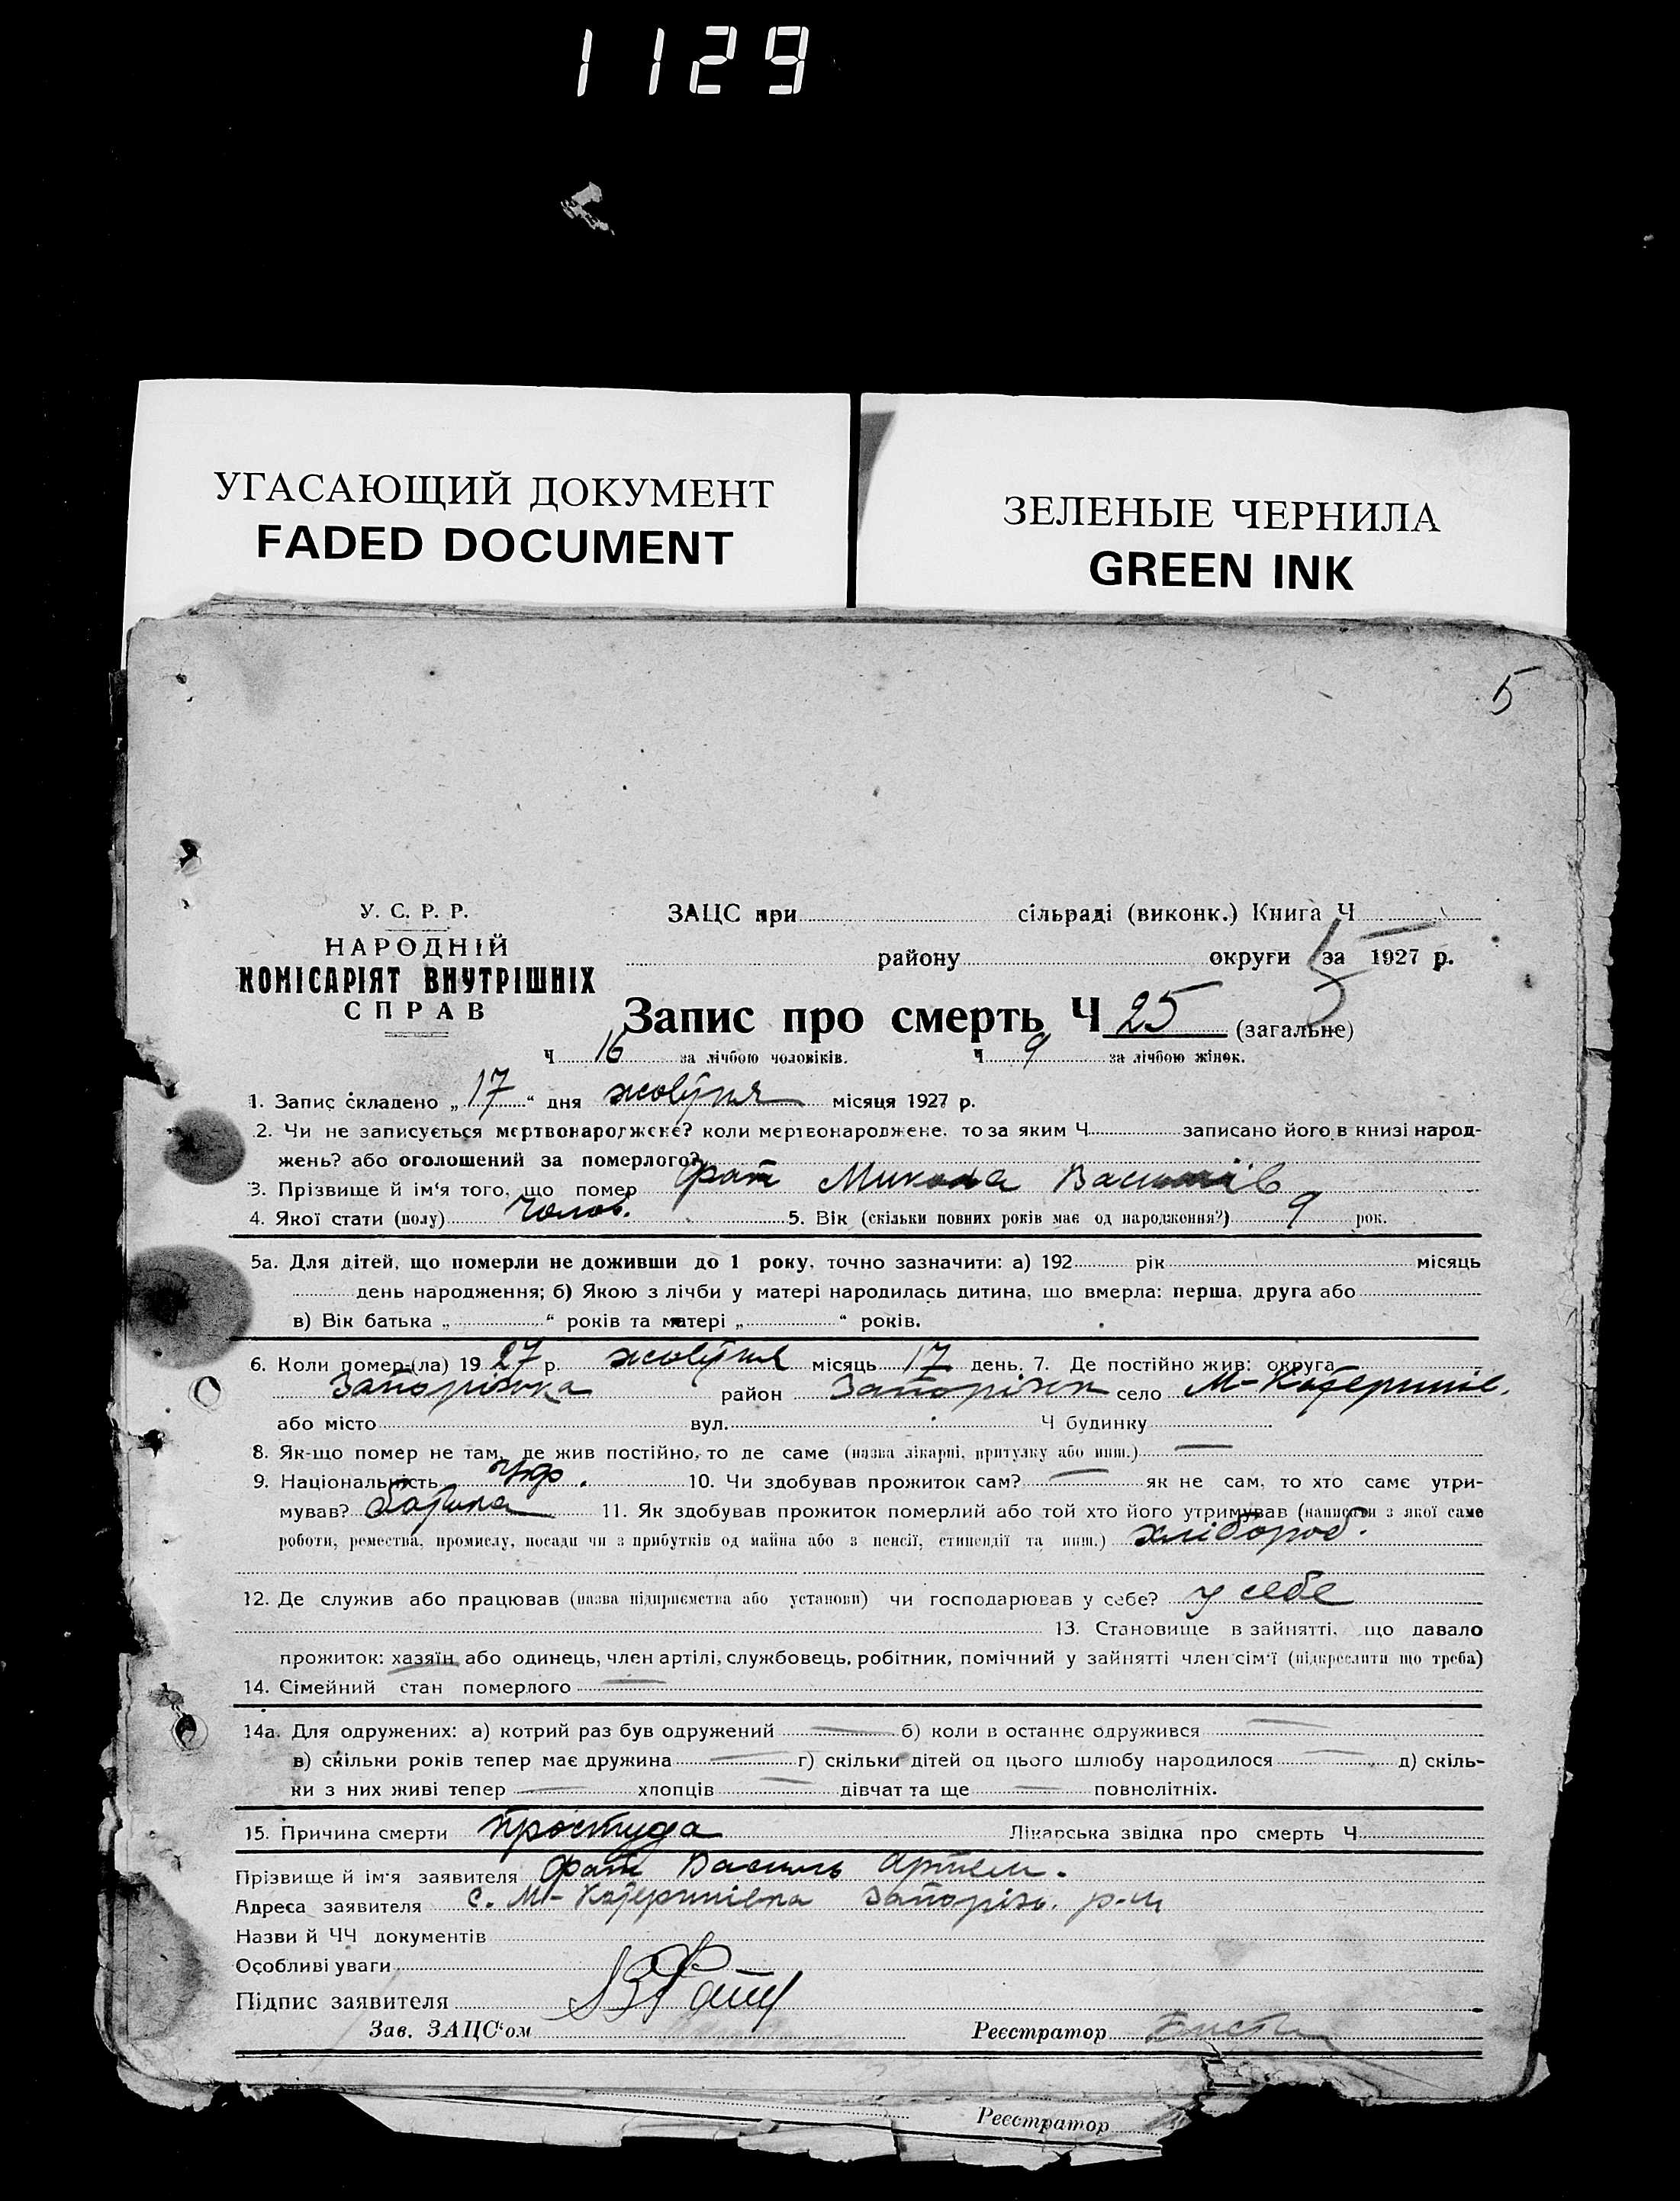 1129
УГАСАЮЩИЙ ДОКУМЕНТ
FADED DOCUMENT
ЗЕЛЕНЫЕ ЧЕРНИЛА
GREEN INK
5
У. С. Р. Р.
НАРОДНІЙ
КОМІСАРІЯТ ВНУТРІШНІХ
СПРАВ
ЗАЦС при сільраді (виконк.) Книга Ч
району округи за 1927 р.
Запис про смерть Ч 25 (загальне)
Ч 16 за лічбою чоловіків. Ч 9 за лічбою жінок.
1. Запис складено „ 17 “ дня жовтня місяця 1927 р.
2. Чи не записується мертвонароджене? коли мертвонароджене, то за яким Ч записано його в книзі народ-
жень? або оголошений за померлого?
3. Прізвище й ім'я того, що помер Фат Микола Василів
4. Якої стати (полу) Чолов. 5. Вік (скільки повних років має од народження?) 9 рок.
5а. Для дітей, що померли не доживши до 1 року, точно зазначити: а) 192 рік місяць
день народження; б) Якою з лічби у матері народилась дитина, що вмерла: перша, друга або
в) Вік батька „ “ років та матері „ “ років.
6. Коли помер-(ла) 19 27 р. жовтня місяць 17 день. 7. Де постійно жив: округа
Запорізька район Запорізьк село М-Катеринів.
або місто вул. Ч будинку
8. Як-що помер не там, де жив постійно, то де саме (назва лікарні, притулку або инш.) —
9. Національність Укр. 10. Чи здобував прожиток сам? — як не сам, то хто саме утри-
мував? Батька 11. Як здобував прожиток померлий або той хто його утримував (написати з якої саме
роботи, ремества, промислу, посади чи з прибутків од майна або з пенсії, стипендії та инш.) хлібороб.
12. Де служив або працював (назва підприємства або установи) чи господарював у себе? у себе
13. Становище в зайнятті, що давало
прожиток: хазяїн або одинець, член артілі, службовець, робітник, помічний у зайнятті член сім'ї (підкреслити що треба)
14. Сімейний стан померлого —
14а. Для одружених: а) котрий раз був одружений — б) коли в останнє одружився —
в) скільки років тепер має дружина — г) скільки дітей од цього шлюбу народилося — д) скіль-
ки з них живі тепер — хлопців — дівчат та ще — повнолітніх.
15. Причина смерти простуда Лікарська звідка про смерть Ч
Прізвище й ім'я заявителя Фат Василь Артем.
Адреса заявителя с. М-Катеринівка Запорізь. р-н
Назви й ЧЧ документів
Особливі уваги
Підпис заявителя В Фат
Зав. ЗАЦС'ом Реєстратор
Реєстратор